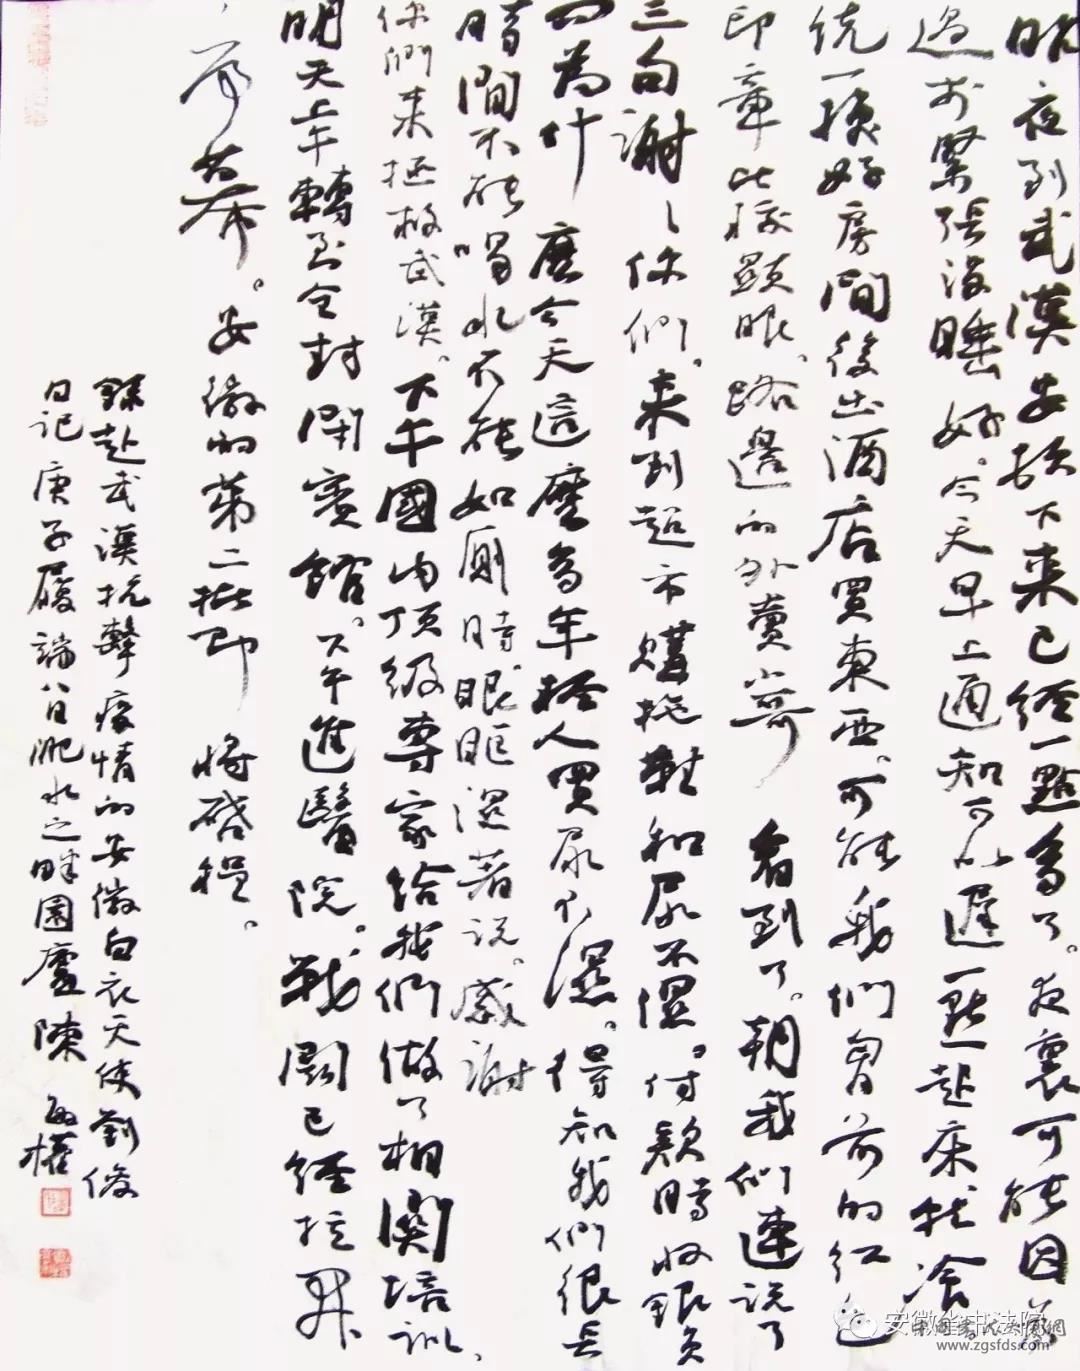 昨夜到武漢安頓下來已經一點多了。夜裏可能因為
過於緊張沒睡好。今天早上通知可以遲一點起床就餐
統一換好房間後出酒店買東西。可能我們胸前的紅色
印章比較顯眼。路邊的外賣小哥看到了。朝我們連說了
三句謝謝你們。來到超市購拖鞋和尿不濕。付款時收銀員
問為什麼今天這麼多年輕人買尿不濕。得知我們很長
時間不能喝水不能如廁時眼眶濕著說。感謝
你們來拯救武漢。下午國內頂級專家給我們做了相關培訓。
明天上午轉至全封閉賓館。下午進醫院。戰鬥已經拉開
序幕。安徽的第二批即將啓程。
錄赴武漢抗擊疫情的安徽白衣天使劉俊
日記庚子履端八日淝水之畔園廬陳
安徽省书法院
中国书法家网
www.zgsfds.com